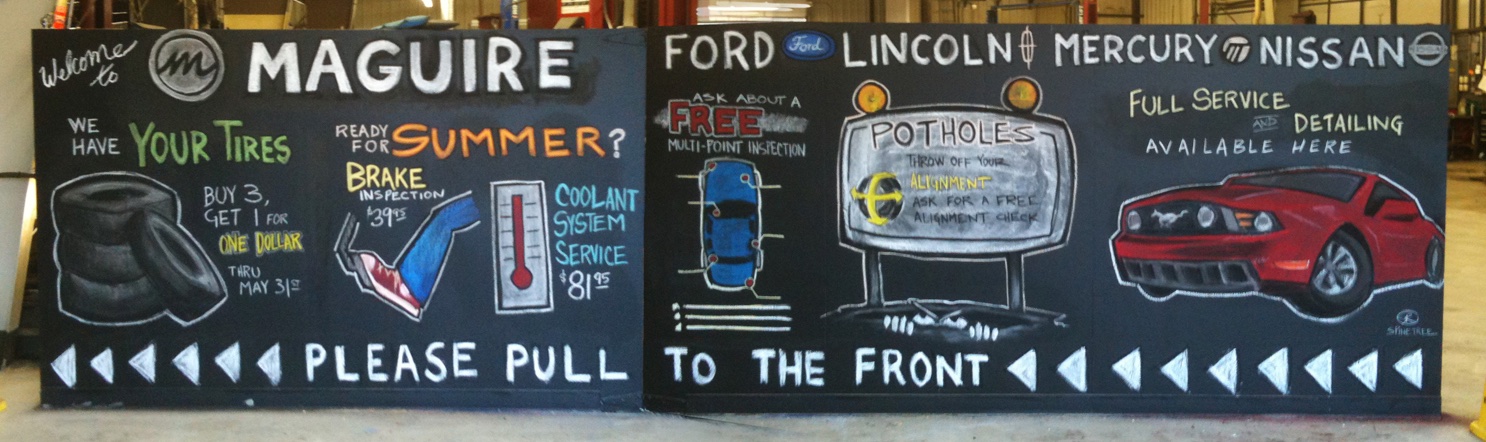 Welcome to
MAGUIRE
FORD Ford LINCOLN MERCURY NISSAN
NISSAN
WE HAVE YOUR TIRES
BUY 3,
GET 1 FOR
ONE DOLLAR
THRU
MAY 31ST
READY FOR SUMMER?
BRAKE
INSPECTION
$39.95
COOLANT
SYSTEM
SERVICE
$81.95
ASK ABOUT A
FREE
MULTI-POINT INSPECTION
POTHOLES
THROW OFF YOUR
ALIGNMENT
ASK FOR A FREE
ALIGNMENT CHECK
FULL SERVICE
AND DETAILING
AVAILABLE HERE
SPINETREE
PLEASE PULL TO THE FRONT